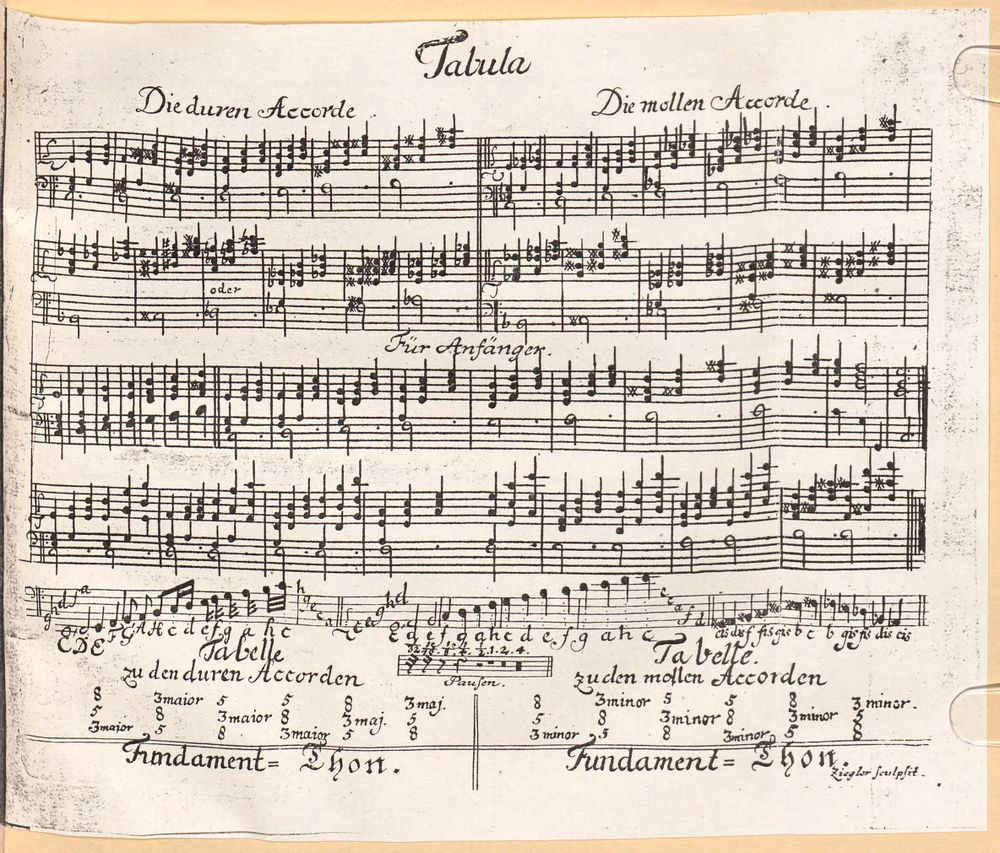 Tabula
Die duren Accorde
Die mollen Accorde.
oder
Für Anfänger.
C D E F G A H c d e f g a h c
c d e f g a h c d e f g a h c
cis dis f fis gis b c b gis fis dis cis
Tabelle
zu den duren Accorden
8 3maior 5 5 8 3maj.
5 8 3maior 8 3maj. 5
3maior 5 8 3maior 5 8
Fundament = Thon.
32 16 8 4 2 1. 2. 4.
Pausen.
Tabelle.
zu den mollen Accorden
8 3minor 5 5 8 3minor.
5 8 3minor 8 3minor 5
3minor 5 8 3minor 5 8
Fundament = Thon.
Ziegler sculpsit.